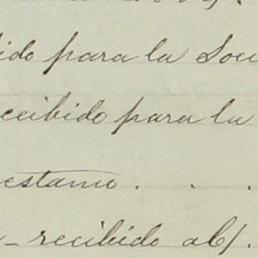 ido para la Soci
ecibido para la
estamo . . .
recibido al